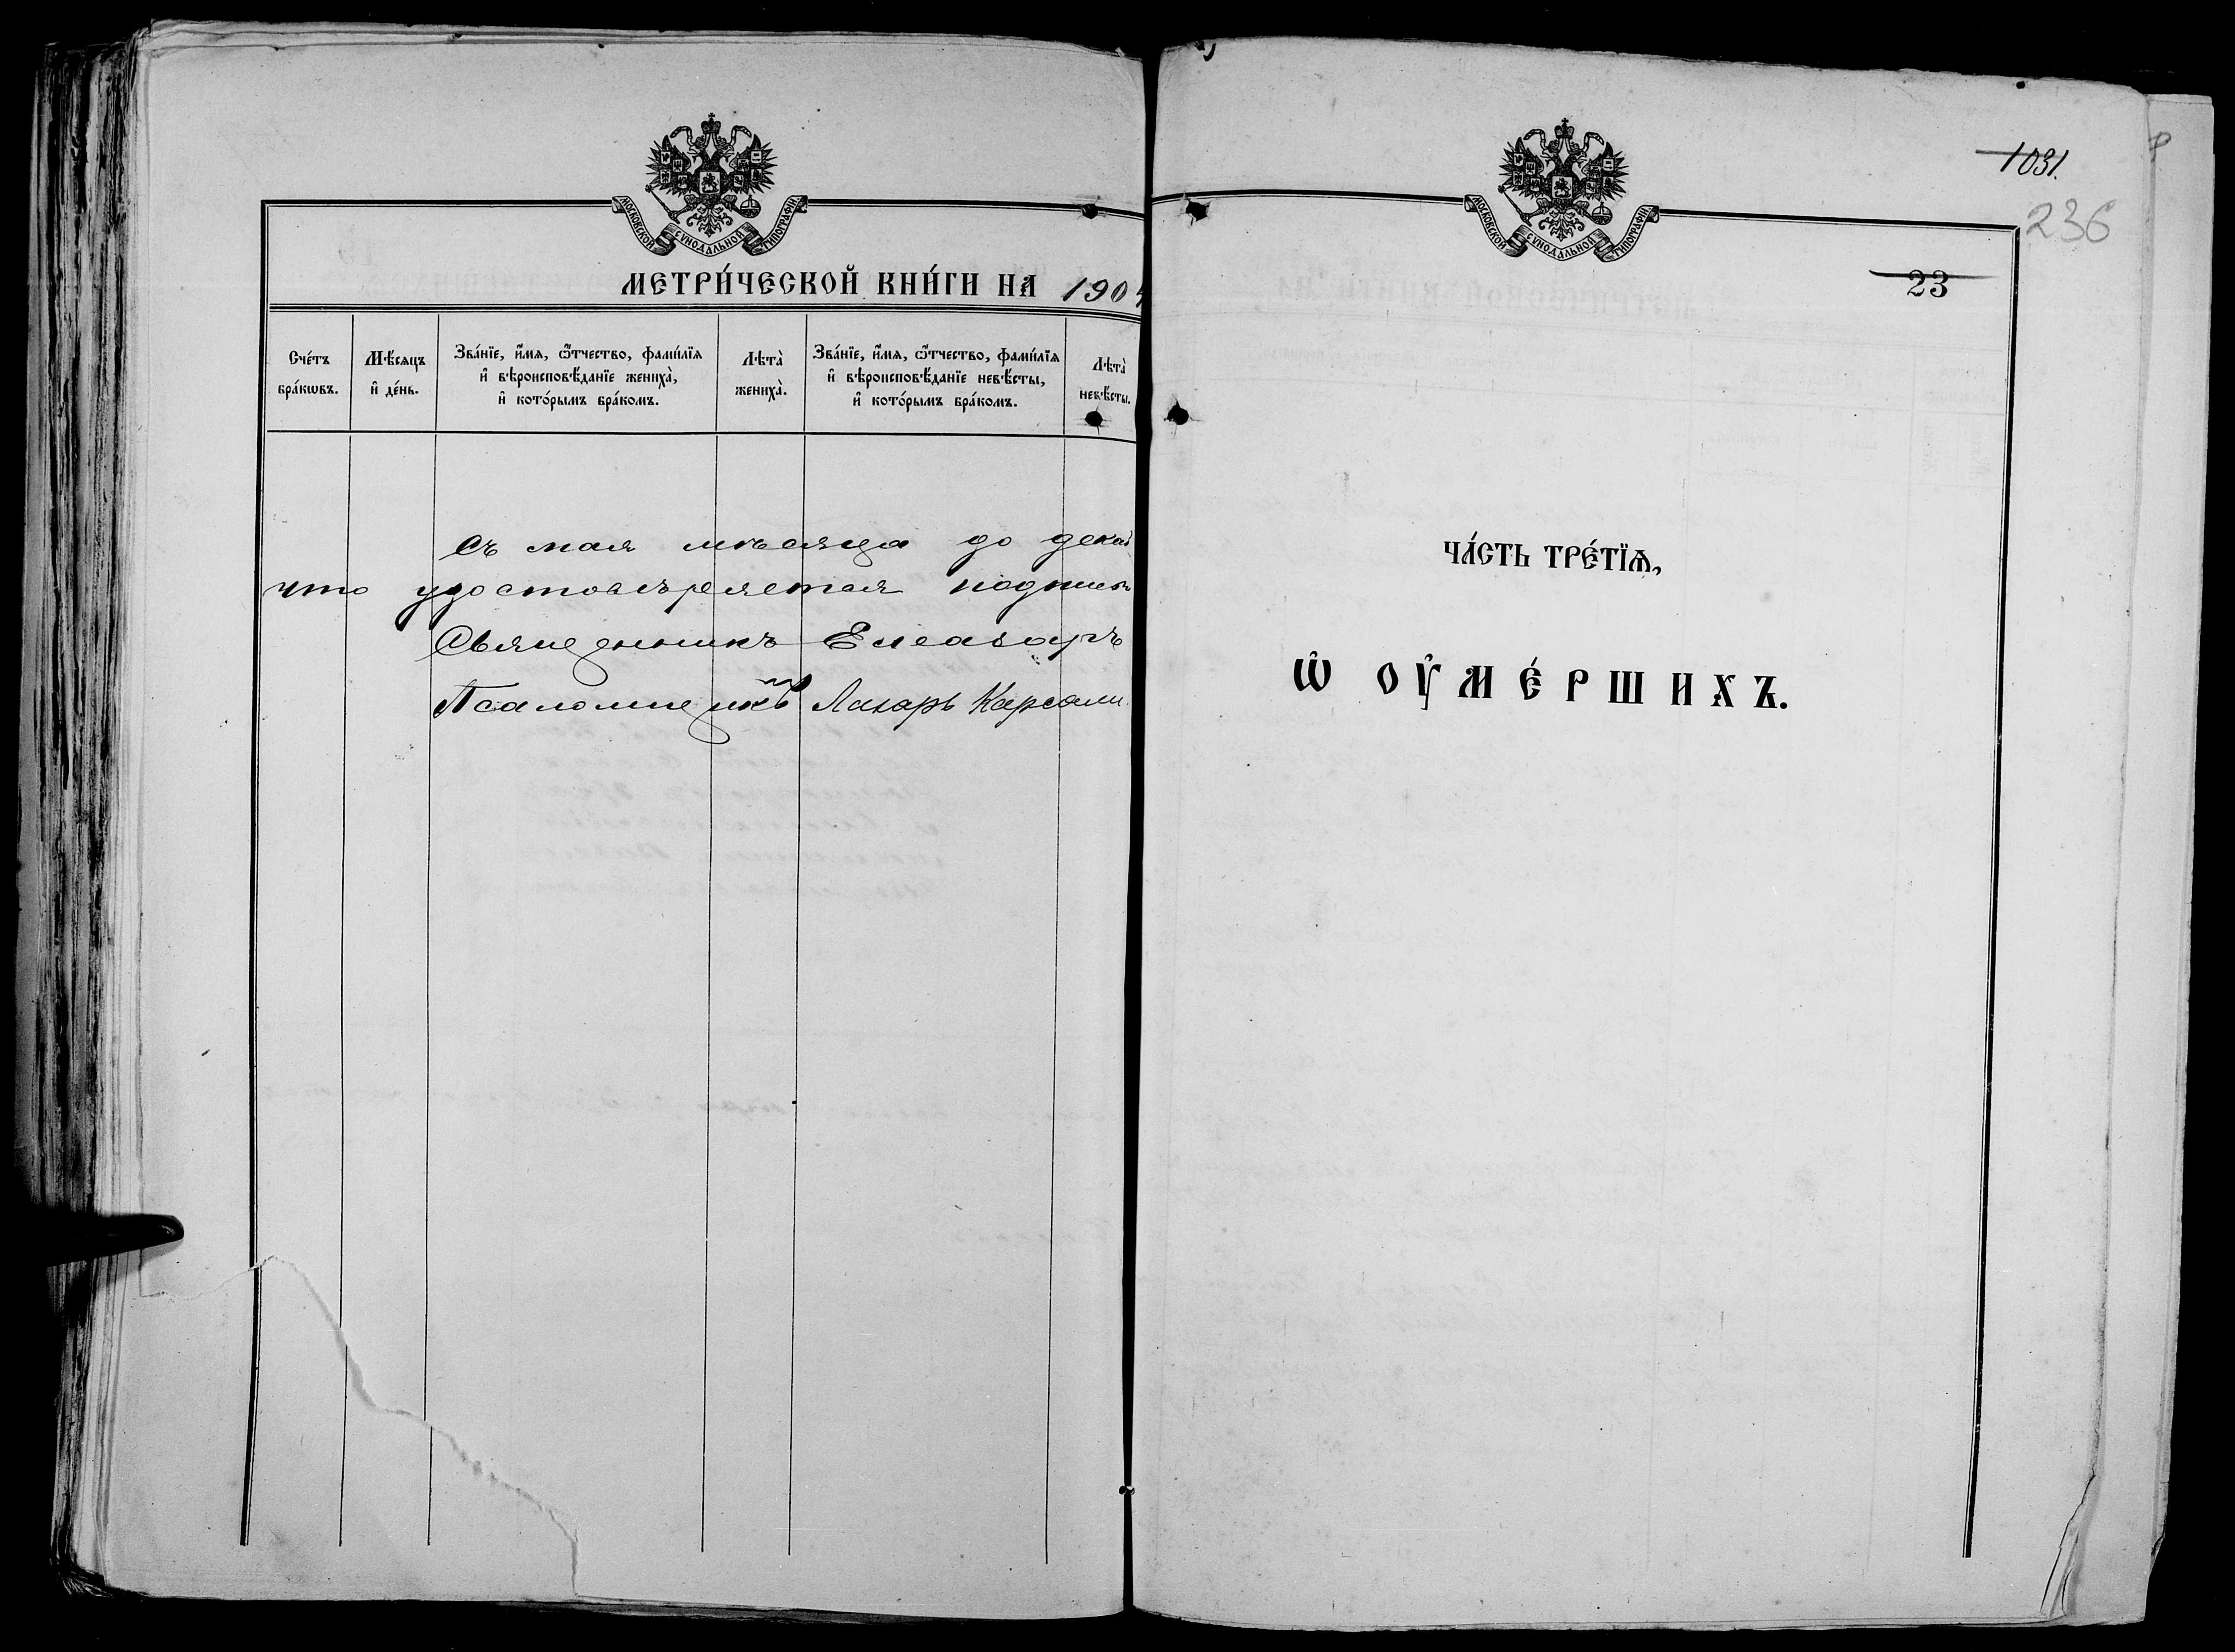 МОСКОВСКОЙ СѴНОДАЛЬНОЙ ТИПОГРАФІИ
МЕТРИ́ЧЕСКОЙ КНИ́ГИ НА 1904
Сче́тъ бра́кѡвъ.
Мѣ́сяцъ и҆ де́нь.
Зва́нїе, и҆́мя, ѻ҆́тчество, фами́лїя
и҆ вѣроисповѣ́данїе жениха̀,
и҆ кото́рымъ бра́комъ.
Лѣта̀ жениха̀.
Зва́нїе, и҆́мя, ѻ҆́тчество, фами́лїя
и҆ вѣроисповѣ́данїе невѣ́сты,
и҆ кото́рымъ бра́комъ.
Лѣта̀ невѣ́сты.
Съ мая мѣсяца до дека
что удостовѣряется подписью
Священникъ Елеазаръ
Псаломщикъ Лазарь Карсали
МОСКОВСКОЙ СѴНОДАЛЬНОЙ ТИПОГРАФІИ
1031.
236
23
ЧА́СТЬ ТРЕ́ТЇѦ,
Ѡ҆ ОУ҆МЕ́РШИХЪ.